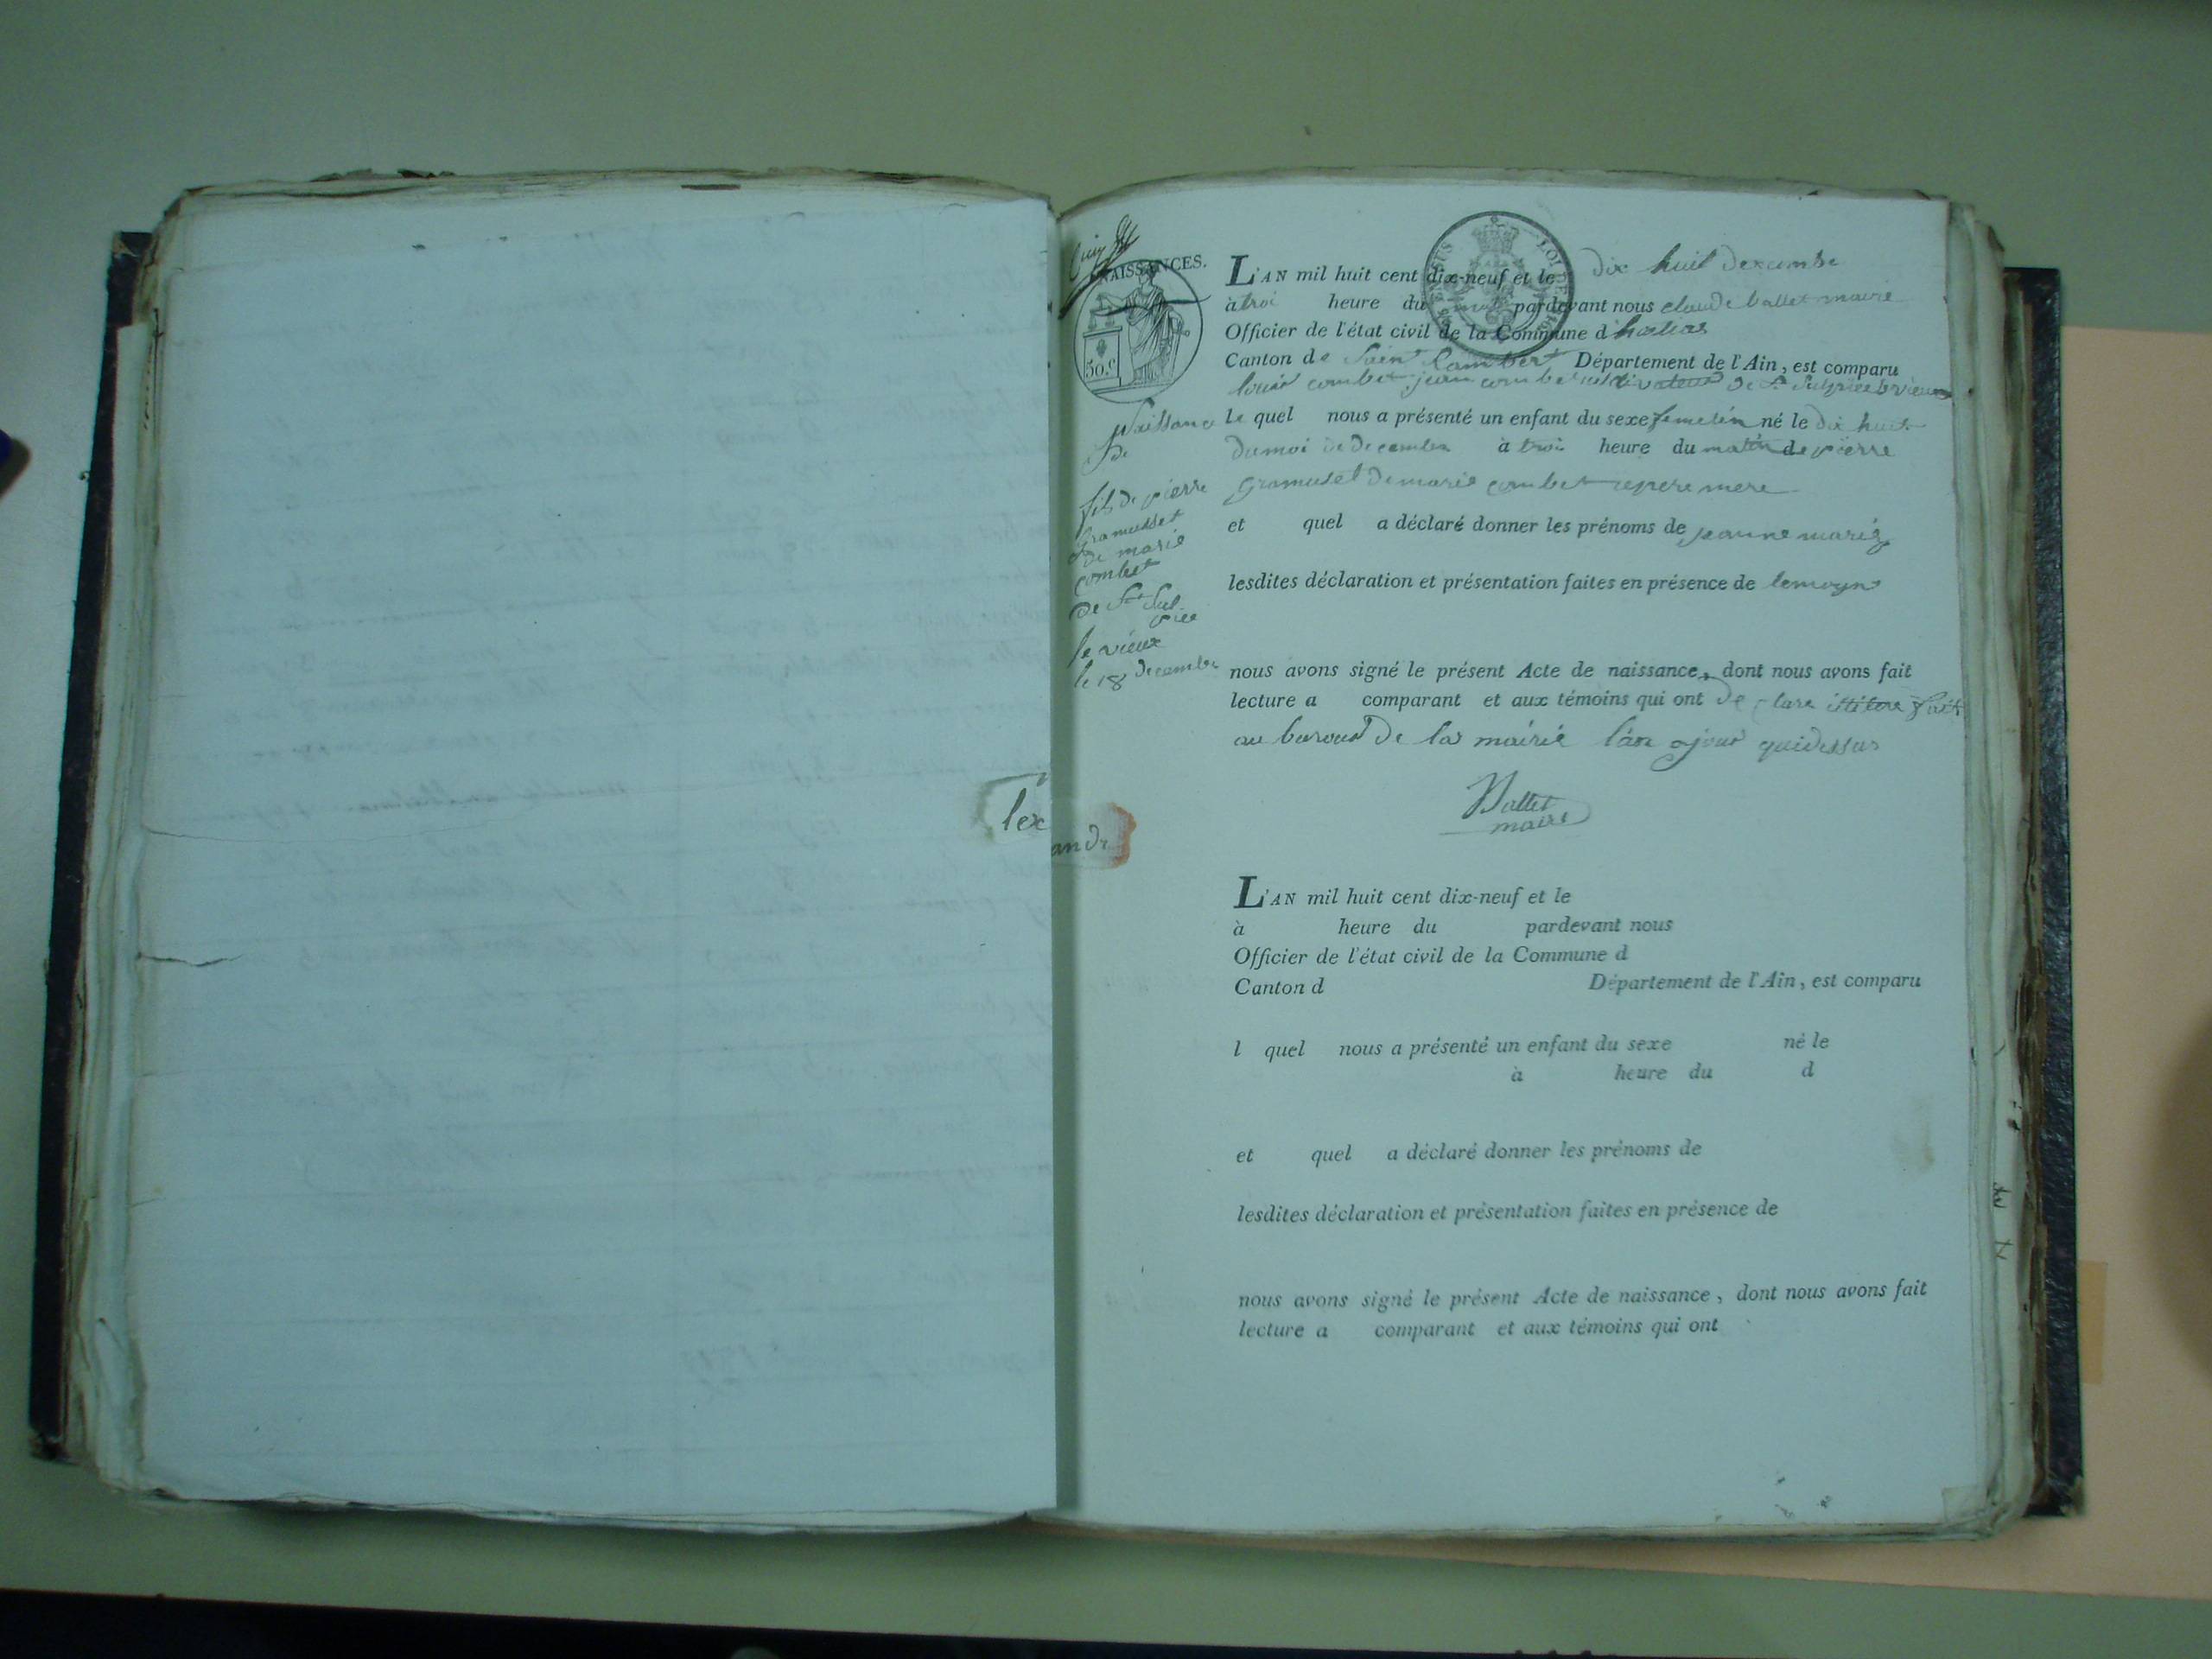 NAISSANCES.
30. c
L'AN mil huit cent dix-neuf et le dix huit decembre
à troi heure du matin pardevant nous claude ballet maire
Officier de l'état civil de la Commune d
Canton de Saint Rambert Département de l'Ain, est comparu
louis combet jean combet cultivateur de St Sulpice le vieux
le quel nous a présenté un enfant du sexe femelin né le dix huit
du moi de decembre à troi heure du matin de pierre
gramusset de marie combet mere
et quel a déclaré donner les prénoms de jeanne marie
lesdites déclaration et présentation faites en présence de
nous avons signé le présent Acte de naissance, dont nous avons fait
lecture a comparant et aux témoins qui ont de clare fait
au buraud de la mairie l'an jour quidessus
Ballet
maire
Naissance
de
fils de pierre
gramusset
de marie
combet
de St Sul
pice
le vieux
le 18 decembre
lex
andr
L'AN mil huit cent dix-neuf et le
à heure du pardevant nous
Officier de l'état civil de la Commune d
Canton d Département de l'Ain, est comparu
l quel nous a présenté un enfant du sexe né le
à heure du d
et quel a déclaré donner les prénoms de
lesdites déclaration et présentation faites en présence de
nous avons signé le présent Acte de naissance, dont nous avons fait
lecture a comparant et aux témoins qui ont